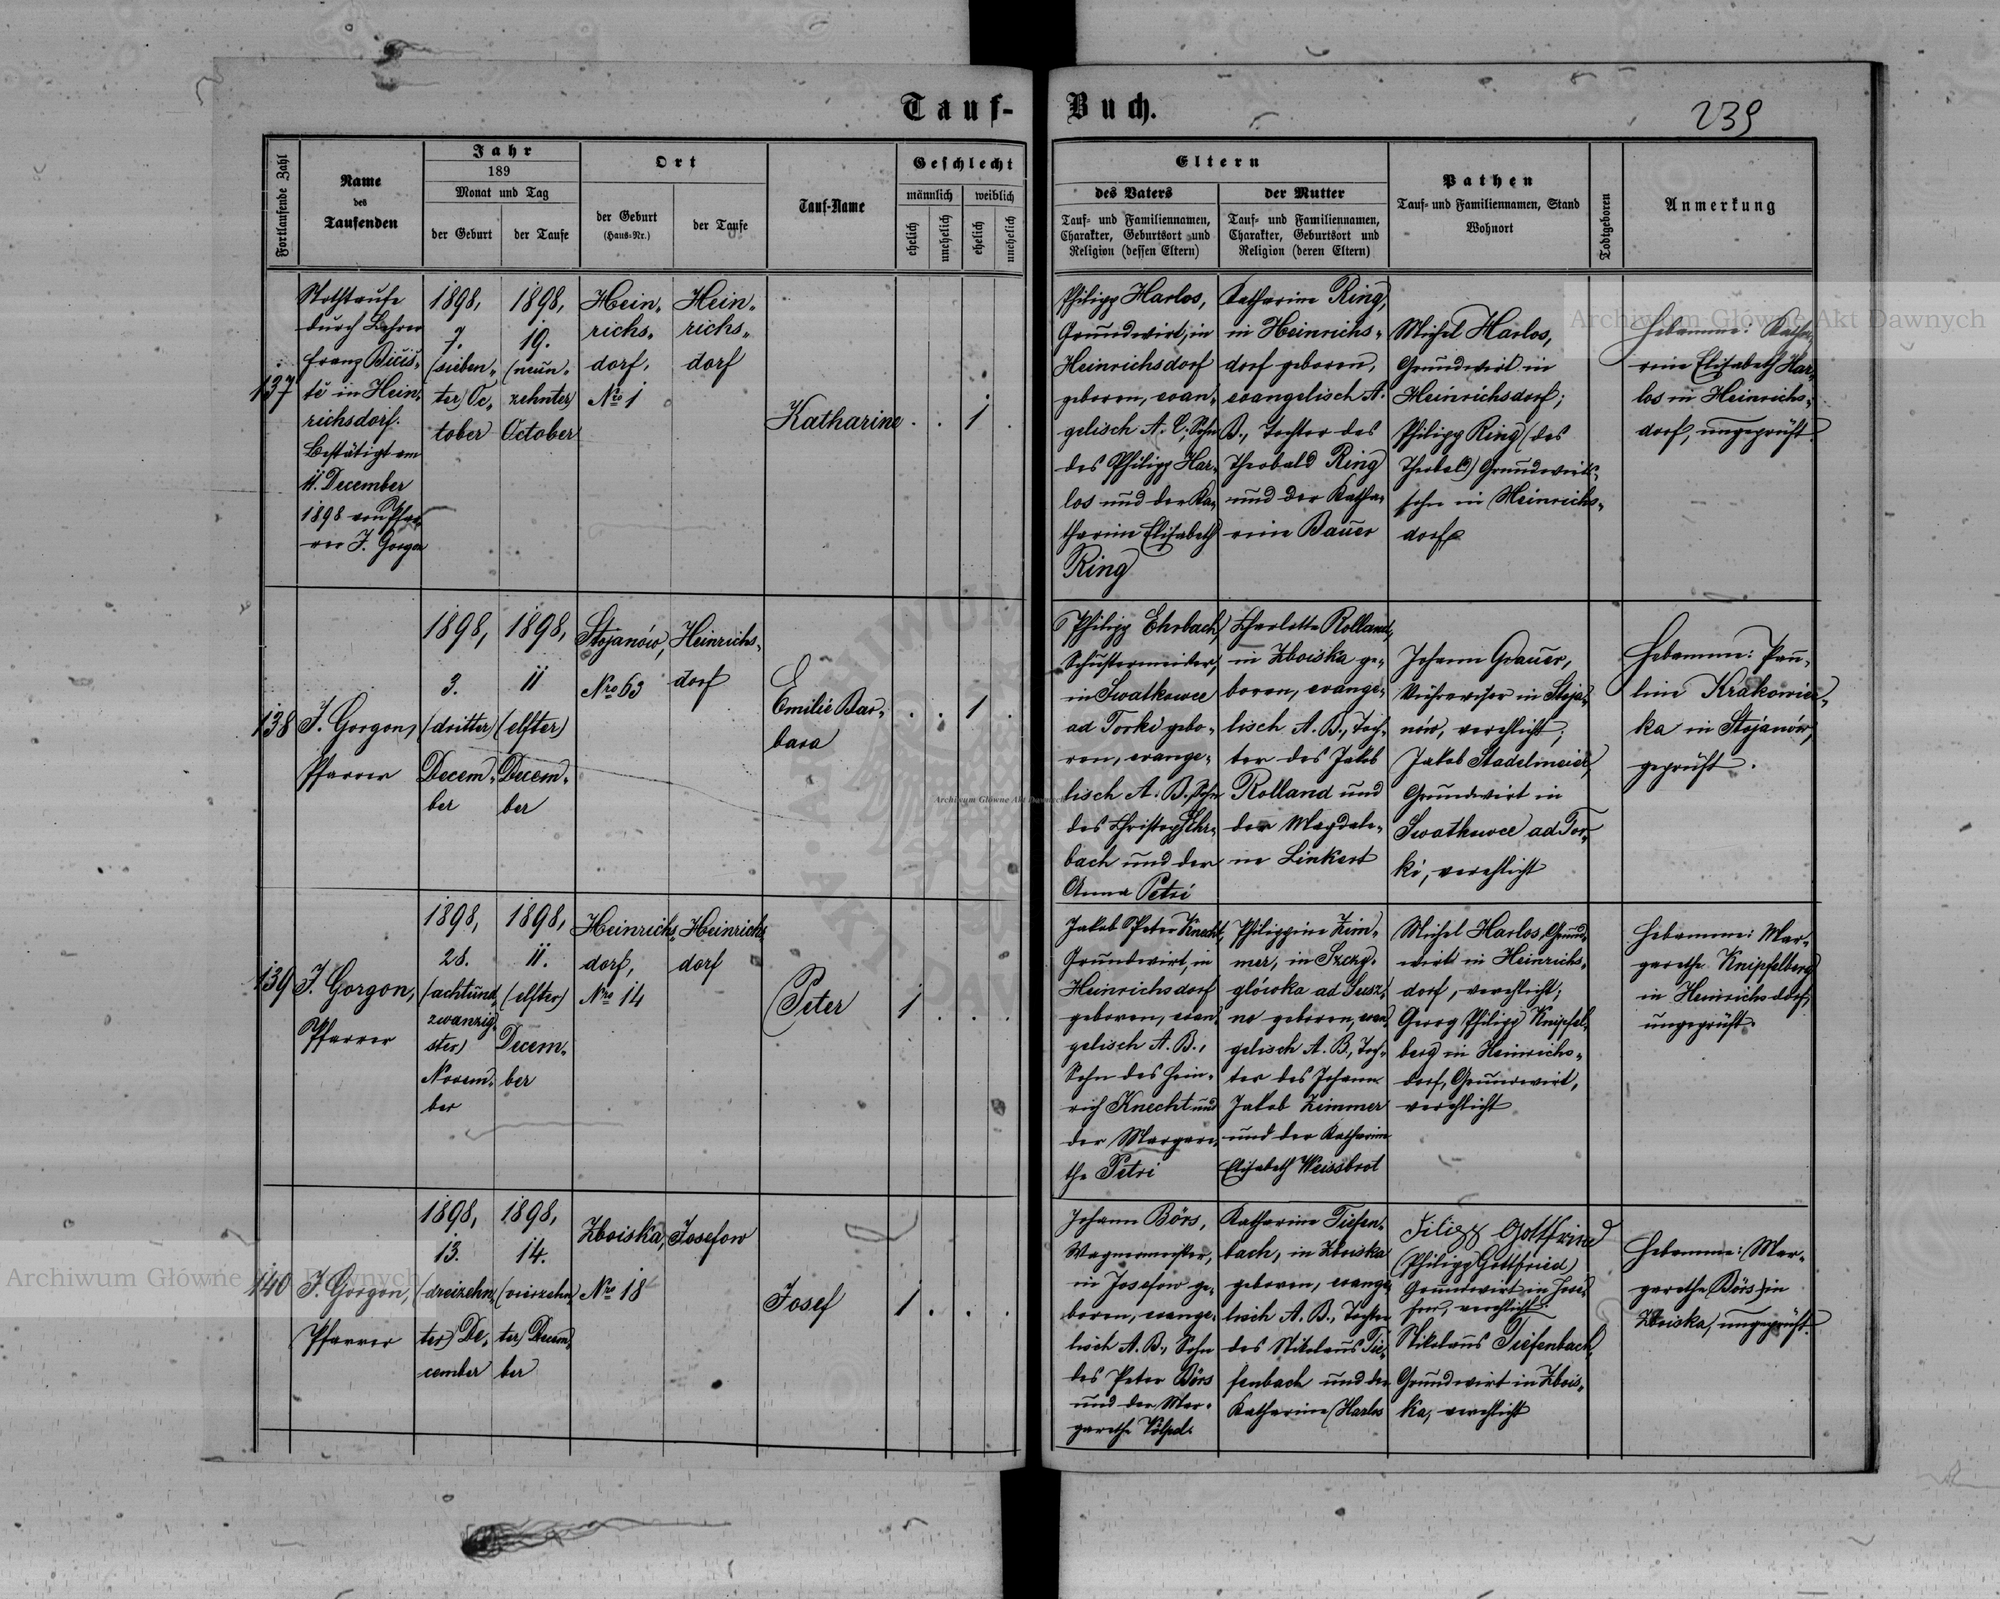 Tauf-Buch.
239
Fortlaufende Zahl
Name
des
Taufenden
Jahr
189
Monat und Tag
der Geburt
der Taufe
Ort
der Geburt
(Haus-Nr.)
der Taufe
Tauf-Name
Geschlecht
männlich
weiblich
ehelich
unehelich
ehelich
unehelich
Eltern
des Vaters
Tauf- und Familiennamen,
Charakter, Geburtsort und
Religion (dessen Eltern)
der Mutter
Tauf- und Familiennamen,
Charakter, Geburtsort und
Religion (deren Eltern)
Pathen
Tauf- und Familiennamen, Stand
Wohnort
Todtgeboren
Anmerkung
137
Nothtaufe
durch Lehrer
Franz
in Hein-
richsdorf.
Bestätigt am
11. December
1898 von Pfar-
rer J. Gorgon
1898,
7.
(sieben-
ter) Oc-
tober
1898,
19.
(neun-
zehnter)
October
Hein-
richs-
dorf,
Nro 1
Hein-
richs-
dorf
Katharine
1
Philipp Harlos,
Grundwirt, in
Heinrichsdorf
geboren, evan-
gelisch A. C., Sohn
des Philipp Har-
los und der Ka-
tharine Elisabeth
Ring
Katharine Ring,
in Heinrichs-
dorf geboren,
evangelisch A.
B., Tochter des
Theobald Ring
und der Katha-
rine Bauer
Michel Harlos,
Grundwirt in
Heinrichsdorf;
Philipp Ring (des
Theobald) Grundwirts-
sohn in Heinrichs-
dorf
Hebamme: Katha-
rine Elisabeth Har-
los in Heinrichs-
dorf, ungeprüft.
138
J. Gorgon,
Pfarrer
1898,
3.
(dritter)
Decem-
ber
1898,
11
(elfter)
Decem-
ber
Stojanów,
Nro 63
Heinrichs-
dorf
Emilie Bar-
bara
1
Philipp Ehrbach,
Schustermeister,
in Swatkowce
ad Torki gebo-
ren, evange-
lisch A. B., Sohn
des Christoph Ehr-
bach und der
Anna Petri
Charlotte Rolland,
in Zboiska ge-
boren, evange-
lisch A. B., Toch-
ter des Jakob
Rolland und
der Magdale-
ne Linkert
Johann Grauer,
in Stoja-
nów, verehlicht;
Jakob Stadelmeier,
Grundwirt in
Swatkowce ad Tor-
ki, verehlicht
Hebamme: Pau-
line Krakowiec-
ka in Stojanów,
geprüft.
139
J. Gorgon,
Pfarrer
1898,
28.
(achtund-
zwanzig-
ster)
Novem-
ber
1898,
11.
(elfter)
Decem-
ber
Heinrichs-
dorf,
Nro 14
Heinrichs-
dorf
Peter
1
Jakob Peter Knecht,
Grundwirt, in
Heinrichsdorf
geboren, evan-
gelisch A. B.,
Sohn des Hein-
rich Knecht und
der Margare-
the Petri
Philippine Zim-
mer, in Szczy-
główka ad Susz-
no geboren, evan-
gelisch A. B., Toch-
ter des Johann
Jakob Zimmer
und der Katharine
Elisabeth Weissbrot
Michel Harlos, Grund-
wirt in Heinrichs-
dorf, verehlicht;
Georg Philipp Knipfel-
berg in Heinrichs-
dorf, Grundwirt,
verehlicht
Hebamme: Mar-
garethe Knipfelberg
in Heinrichsdorf,
ungeprüft.
140
J. Gorgon,
Pfarrer
1898,
13.
(dreizehn-
ter) De-
cember
1898,
14.
(vierzehn-
ter) Decem-
ber
Zboiska,
Nro 18
Josefow
Josef
1
Johann Börs,
Wagnermeister,
in Josefow ge-
boren, evange-
lisch A. B., Sohn
des Peter Börs
und der Mar-
garethe
Katharine Tiefen-
bach, in Zboiska
geboren, evange-
lisch A. B., Tochter
des Nikolaus Tie-
fenbach und der
Katharine Harlos
Filipp Gottfried
(Philipp Gottfried)
Grundwirt in Jose-
fow, verehlicht;
Nikolaus Tiefenbach,
Grundwirt in Zbois-
ka, verehlicht
Hebamme: Mar-
garethe Börs in
Zboiska, ungeprüft.
Archiwum Główne Akt Dawnych
Archiwum Główne Akt Dawnych
Archiwum Główne Akt Dawnych